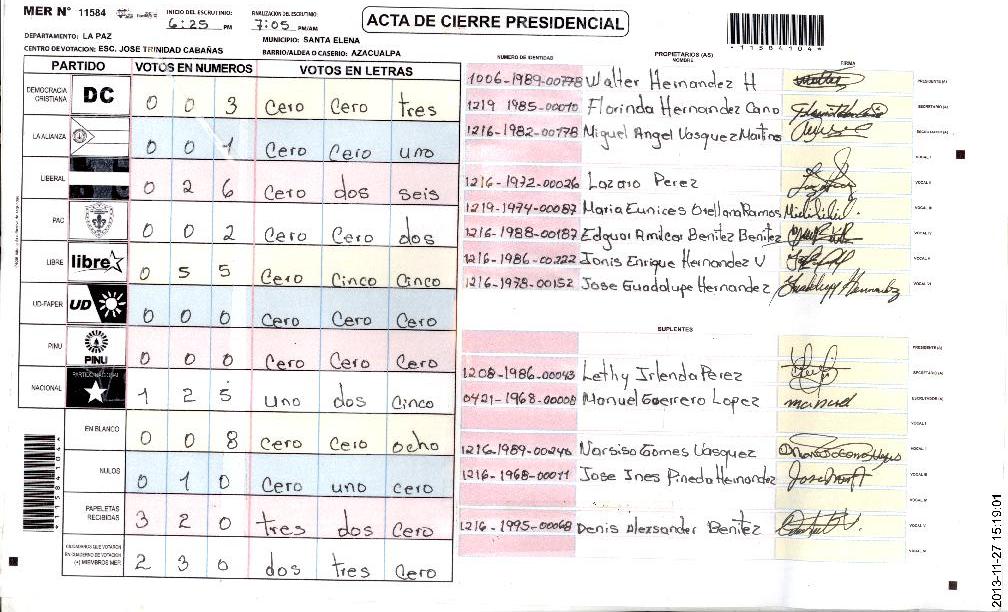 MER N° 11584
INICIO DEL ESCRUTINIO: 6:25 PM
FINALIZACION DEL ESCRUTINIO: 7:05 PM/AM
ACTA DE CIERRE PRESIDENCIAL
*11584104*
DEPARTAMENTO: LA PAZ
MUNICIPIO: SANTA ELENA
CENTRO DE VOTACION: ESC. JOSE TRINIDAD CABAÑAS
BARRIO/ALDEA O CASERIO: AZACUALPA
PARTIDO VOTOS EN NUMEROS VOTOS EN LETRAS
DEMOCRACIA CRISTIANA DC 0 0 3 Cero Cero tres
LA ALIANZA 0 0 1 Cero Cero uno
LIBERAL 0 2 6 Cero dos seis
PAC 0 0 2 Cero Cero dos
LIBRE libre 0 5 5 Cero Cinco Cinco
UD-FAPER UD 0 0 0 Cero Cero Cero
PINU PINU 0 0 0 Cero Cero Cero
NACIONAL PARTIDO NACIONAL 1 2 5 uno dos Cinco
EN BLANCO 0 0 8 Cero Cero ocho
NULOS 0 1 0 Cero uno cero
PAPELETAS RECIBIDAS 3 2 0 tres dos Cero
CIUDADANOS QUE VOTARON EN CUADERNO DE VOTACION (+) MIEMBROS MER 2 3 0 dos tres Cero
PROPIETARIOS (AS)
NUMERO DE IDENTIDAD NOMBRE FIRMA
1006-1989-00778 Walter Hernandez H PRESIDENTE(A)
1219 1985-00010 Florinda Hernandez Cano SECRETARIO(A)
1216-1982-00178 Miguel Angel Vasquez Martine
VOCAL I
1216-1972-00026 Lazaro Perez VOCAL II
1219-1974-00087 Maria Eunices Orellana Ramos VOCAL III
1216-1988-00187 Edguar Amilcar Benitez Benitez VOCAL IV
1216-1986-00222 Jonis Enrique Hernandez V VOCAL V
1216-1978-00152 Jose Guadalupe Hernandez Guadalupe Hernandez VOCAL VI
SUPLENTES
PRESIDENTE(A)
1208-1986-00043 Lethy Irlenda Perez SECRETARIO(A)
0421-1968-00008 Manuel Guerrero Lopez manuel ESCRUTADOR(A)
VOCAL I
1216-1989-00246 Narsiso Gomes Vasquez
1216-1968-00011 Jose Ines Pineda Hernandez VOCAL III
VOCAL IV
1216-1995-00068 Denis Alexsander Benitez VOCAL V
VOCAL VI
*11584104*
2013-11-27 15:19:01